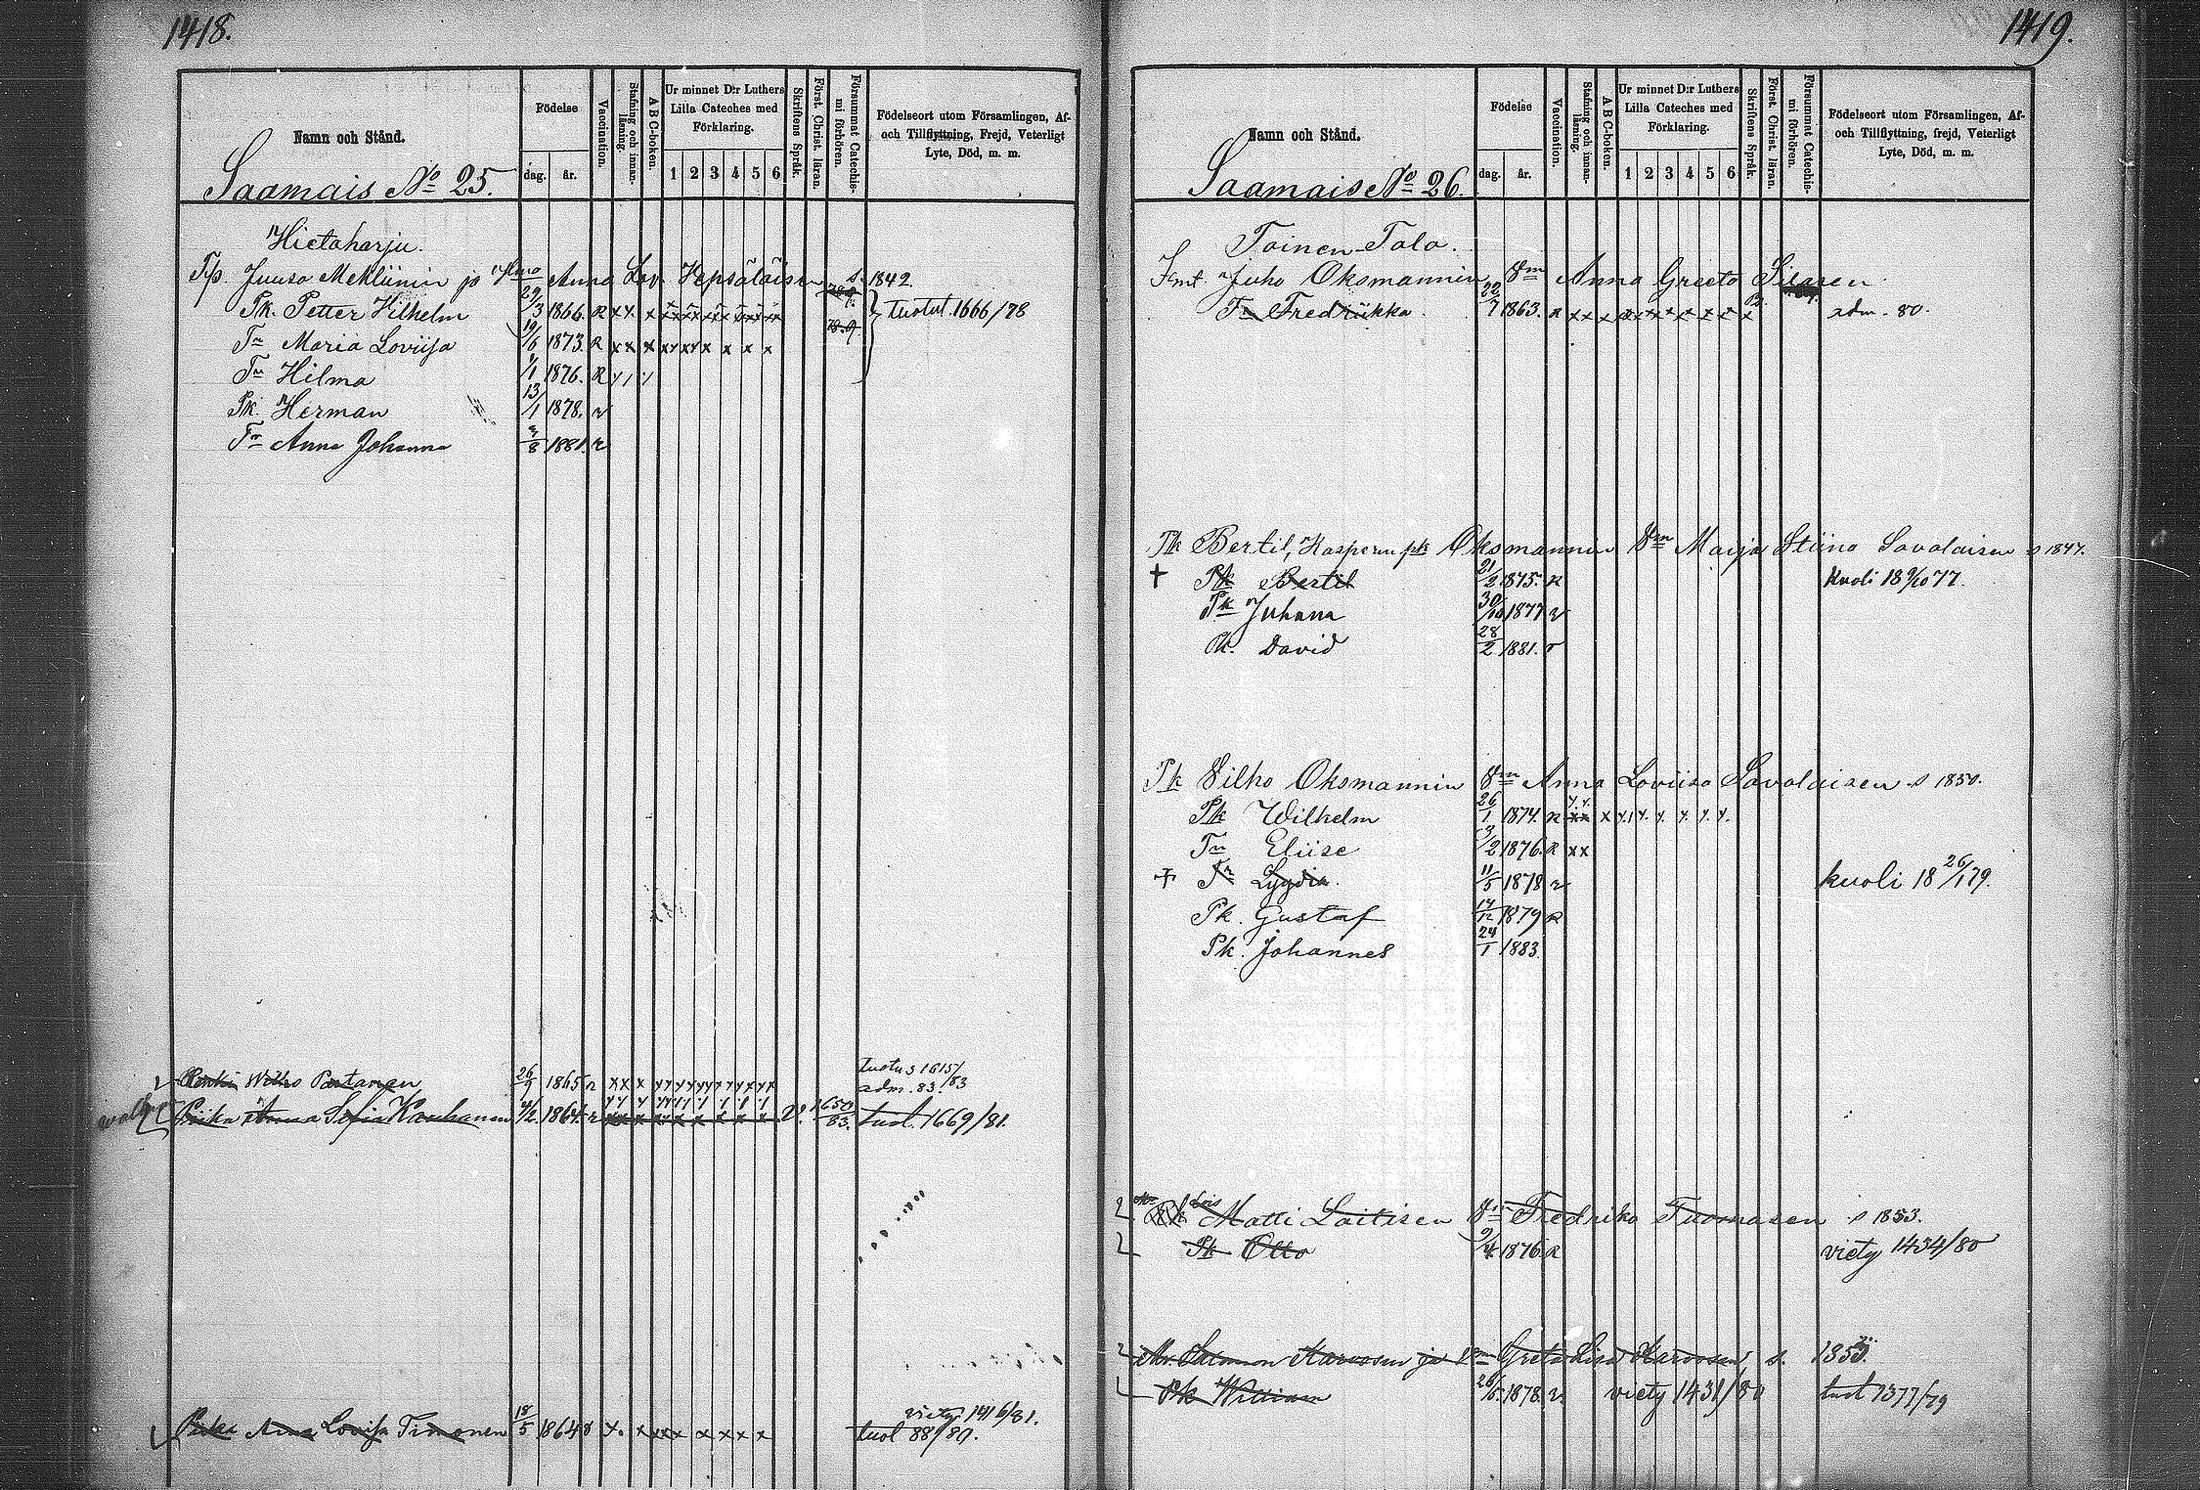 1418.
Namn och Stånd.
Födelse
dag.
år.
Vaccination.
Stafning och innanläsning.
A B C-boken.
Ur minnet D:r Luthers Lilla Cateches med Förklaring.
1 2 3 4 5 6
Skriftens Språk.
Först. Christ. läran.
Försumat Catechismi förhören.
Födelseort utom Församlingen, Af- och Tillflyttning, Frejd, Veterligt Lyte, Död, m. m.
Saamais No 25.
Hietaharju.
Juuso Mekliinin ja Anna Lov. s. 1842.
Pk. Petter Vilhelm 29/3 1866. R tuotut 1666/78
Tr Maria Loviisa 19/6 1873. R
Tr Hilma 1876. R
Pk. Herman 13/1 1878. r
Tr Anna Johanna 3/8 1881. r
Wilho Partanen 26/9 1865 r tuotu s 1615/83 adm. 83
Piika Anna Sofia Kauhanen 4/2 1864 r tuot. 1669/81.
Loviisa Timonen 18/5 1864 viety 1416/81. tuot 88/80.
1419.
Namn och Stånd.
Födelse
dag.
år.
Vaccination.
Stafning och innanläsning.
A B C-boken.
Ur minnet D:r Luthers Lilla Cateches med Förklaring.
1 2 3 4 5 6
Skriftens Språk.
Först. Christ. läran.
Försumat Catechismi förhören.
Födelseort utom Församlingen, Af- och Tillflyttning, frejd, Veterligt Lyte, Död, m. m.
Saamais No 26.
Toinen-Talo.
Juho Oksmannin Vm Anna Greeta
Tr Fredriikka 22/7 1863. R adm. 80.
Pk Bertil, Oksmannin Vm Maija Stiina Savolaisen s 1847.
† Pk Bertil 21/2 1875. R Kuoli 18 9/10 77.
Pk Juhana 30/10 1877 r
Pk. David 28/2 1881. r
Pk Vilho Oksmannin Vm Anna Loviisa Savolaisen s 1850.
Pk Wilhelm 26/1 1874. R
Tr Eliise 3/2 1876. R x x
† Tr Lydia. 11/5 1878 r kuoli 18 26/1 79.
Pk. Gustaf 14/12 1879 R
Pk. Johannes 24/1 1883.
Lois Matti Laitisen Vm Fredrika Tuomasen s 1853.
Pk Otto 9/4 1876 R viety 1434/80
Salomon Karvosen ja Vm Greta Lisa Karvosen s.
Pk William 1878. r. viety 1431/80 tuot 1377/79